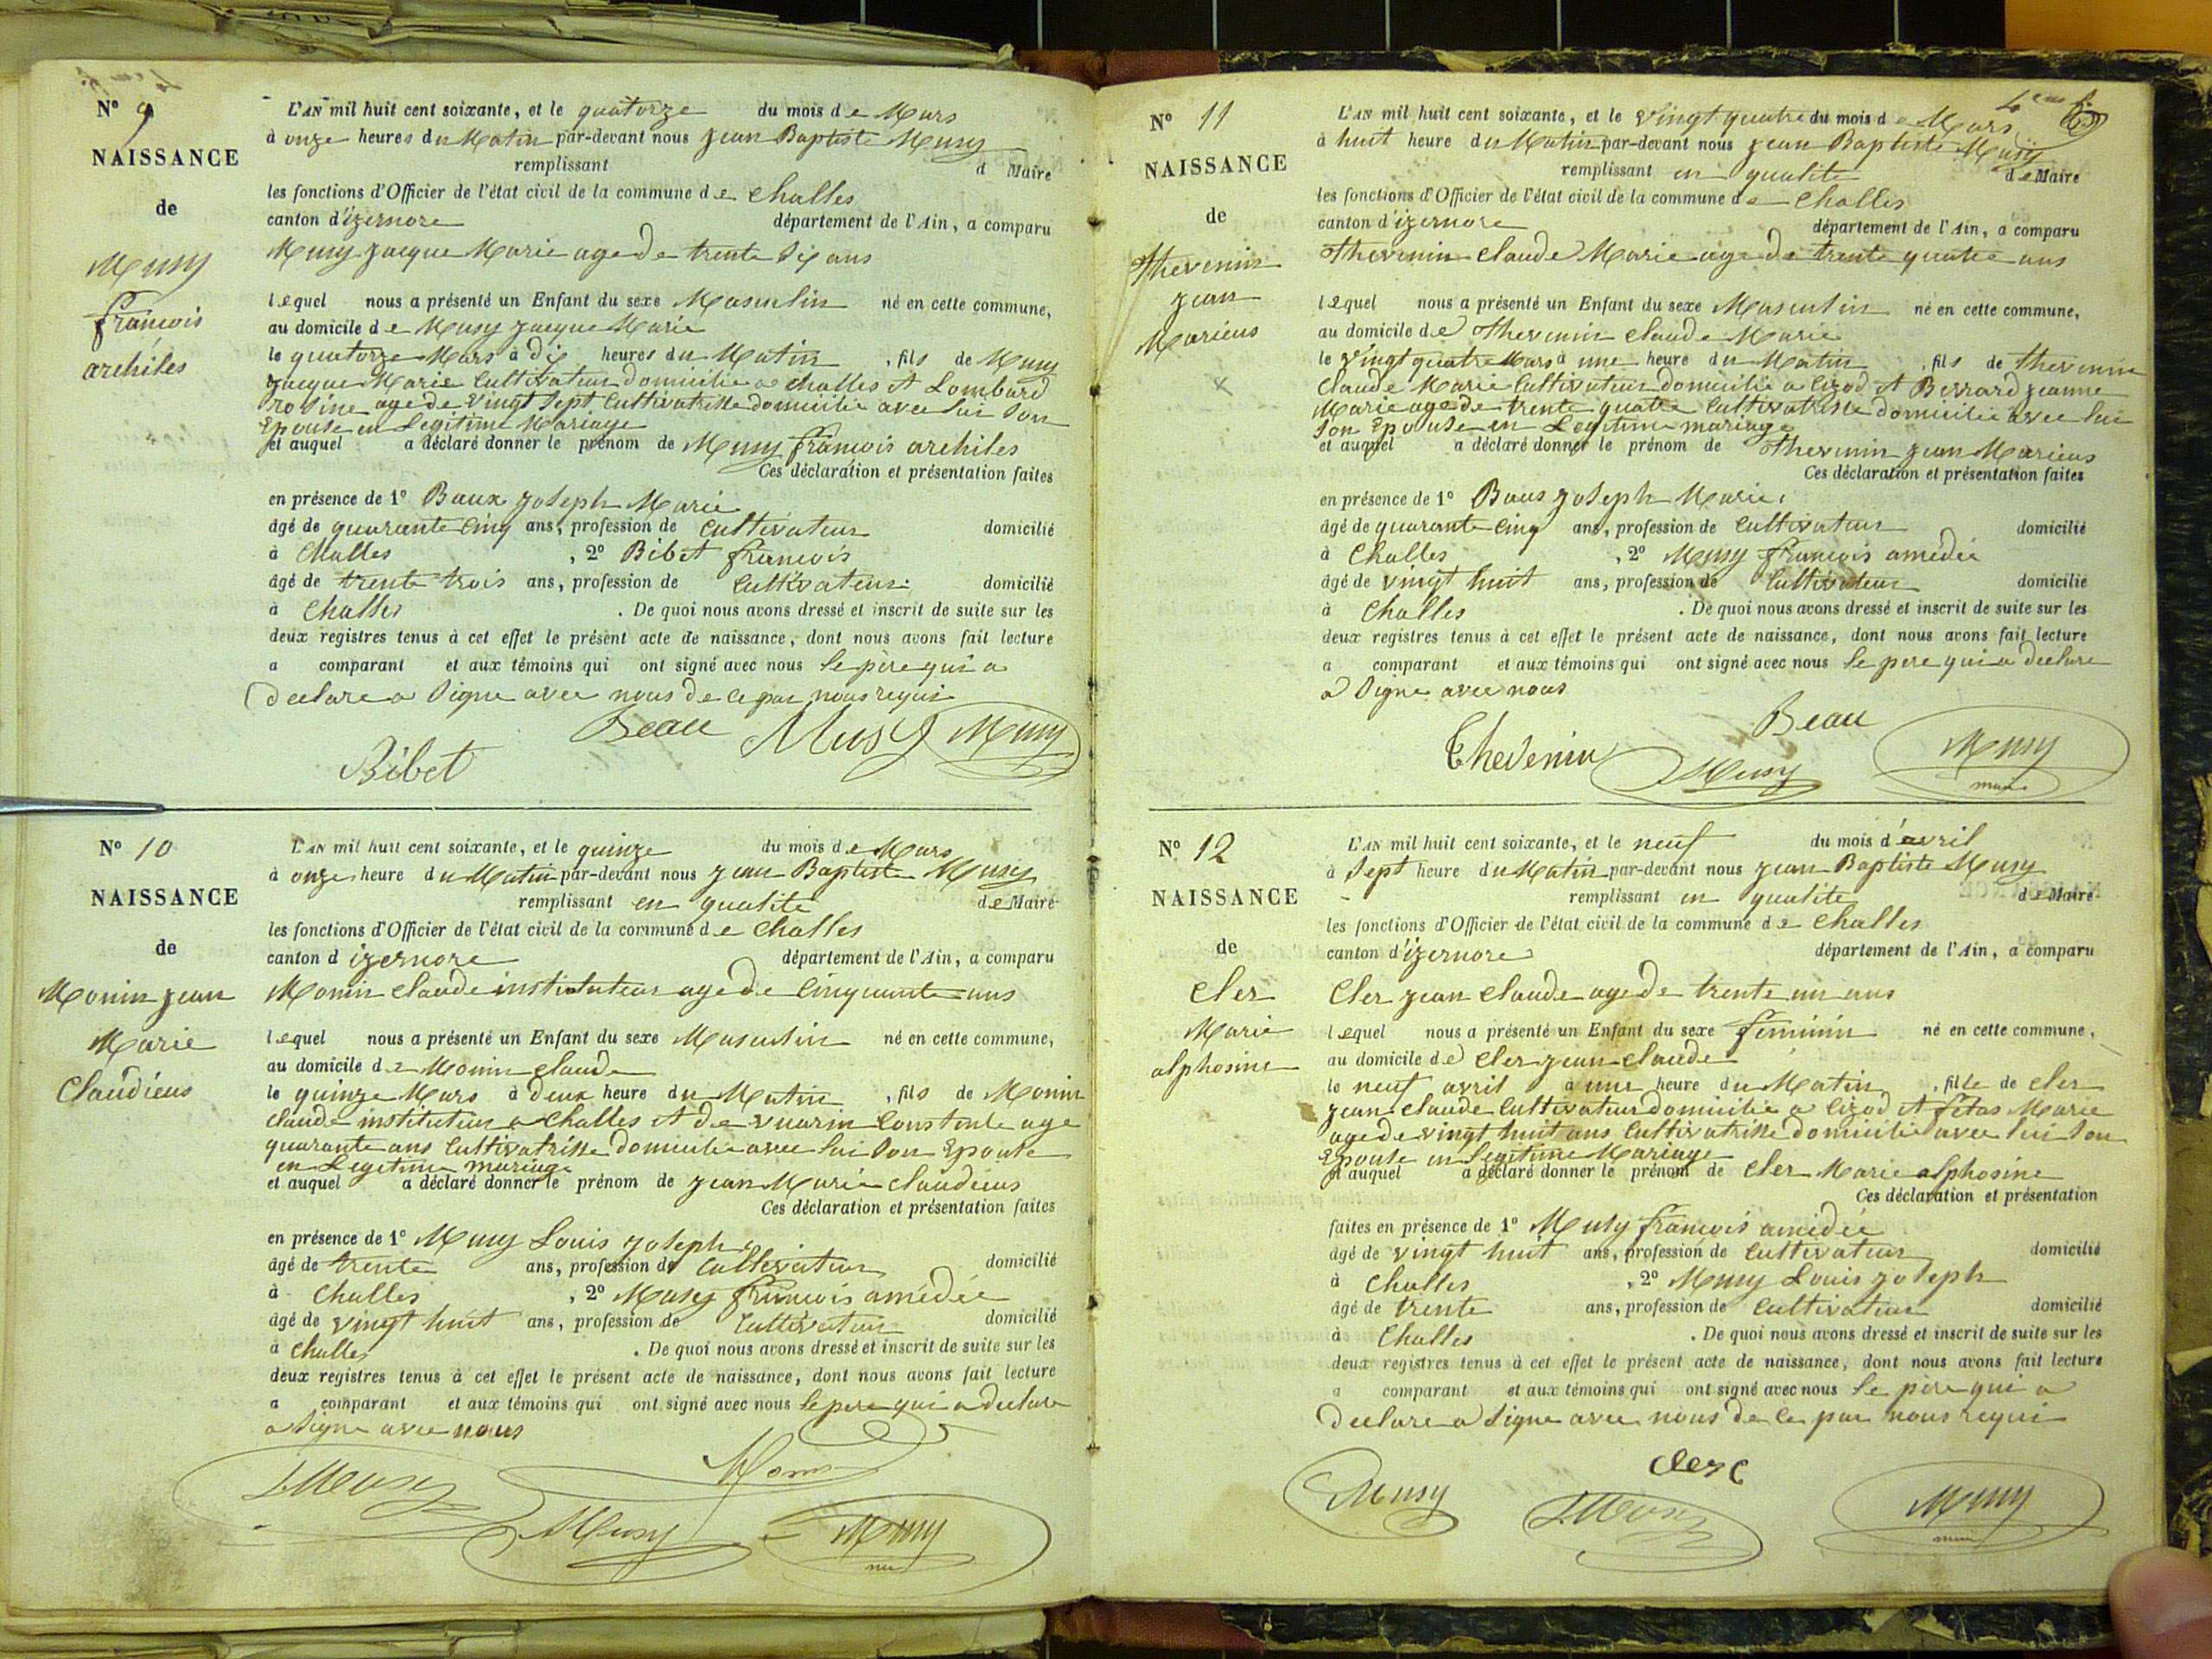 N° 9
NAISSANCE
de
Musy
françois
archiles
L'AN mil huit cent soixante, et le quatorze du mois de Mars
à onze heures du Matin par-devant nous jean Baptiste Musy
remplissant d Maire
les fonctions d'Officier de l'état civil de la commune de Challes
canton d'izernore département de l'Ain, a comparu
Musy jacque Marie age de trente six ans
lequel nous a présenté un Enfant du sexe Masculin né en cette commune,
au domicile de Musy jacque Marie
le quatorze Mars à dix heures du Matin, fils de Musy
jacque Marie Cultivateur domicilie a challes et Lombard
rosine age de vingt Sept Cultivatrisse domicilie avec lui Son
Epouse en Legitime Mariage
et auquel a déclaré donner le prénom de Musy françois archiles
Ces déclaration et présentation faites
en présence de 1° Baux joseph Marie
âgé de quarante Cinq ans, profession de Cultivateur domicilié
à Challes, 2° Bibet françois
âgé de trente trois ans, profession de Cultivateur domicilié
à Challes. De quoi nous avons dressé et inscrit de suite sur les
deux registres tenus à cet effet le présent acte de naissance, dont nous avons fait lecture
a comparant et aux témoins qui ont signé avec nous le père qui a
declare a Signe avec nous de ce par nous requis
Beau Musy Musy
Bibet
N° 10
NAISSANCE
de
Monin jean
Marie
Claudieus
L'AN mil huit cent soixante, et le quinze du mois de Mars
à onze heure du Matin par-devant nous jean Baptiste Musy
remplissant en qualite de Maire
les fonctions d'Officier de l'état civil de la commune de Challes
canton d izernore département de l'Ain, a comparu
Monin claude instituteur age de Cinquante ans
lequel nous a présenté un Enfant du sexe Masculin né en cette commune,
au domicile de Monin claude
le quinze Mars à deux heure du Matin, fils de Monin
claude instituteur a Challes et de vuarin Constente age
quarante ans Cultivatrisse domicilie avec lui Son Epouse
en Legitime mariage
et auquel a déclaré donner le prénom de jean Marie Claudieus
Ces déclaration et présentation faites
en présence de 1° Musy Louis joseph
âgé de trente ans, profession de Cultivateur domicilié
à Challes, 2° Musy françois amédée
âgé de vingt huit ans, profession de Cultivateur domicilié
à Challes. De quoi nous avons dressé et inscrit de suite sur les
deux registres tenus à cet effet le présent acte de naissance, dont nous avons fait lecture
a comparant et aux témoins qui ont signé avec nous le pere qui a declare
a Signe avec nous
Monin
Musy
Musy Musy
N° 11
NAISSANCE
de
Thevenin
jean
Marieus
L'AN mil huit cent soixante, et le Vingt quatre du mois de Mars
à huit heure du Matin par-devant nous jean Baptiste Musy
remplissant en qualite de Maire
les fonctions d'Officier de l'état civil de la commune de Challes
canton d'izernore département de l'Ain, a comparu
Thevenin claude Marie age de trente quatre ans
lequel nous a présenté un Enfant du sexe Masculin né en cette commune,
au domicile de Thevenin claude Marie
le Vingt quatre Mars à une heure du Matin, fils de thevenin
claude Marie Cultivateur domicilie a Cizod et Berrard jeanne
Marie age de trente quatre Cultivatrisse domicilie avec lui
Son Epouse en Legitime mariage
et auquel a déclaré donner le prénom de Thevenin jean Marieus
Ces déclaration et présentation faites
en présence de 1° Baux joseph Marie
âgé de quarante Cinq ans, profession de Cultivateur domicilié
à Challes, 2° Musy françois amédée
âgé de vingt huit ans, profession de Cultivateur domicilié
à Challes. De quoi nous avons dressé et inscrit de suite sur les
deux registres tenus à cet effet le présent acte de naissance, dont nous avons fait lecture
a comparant et aux témoins qui ont signé avec nous le pere qui a declare
a Signe avec nous
Beau
Thevenin Musy Musy
maire
N° 12
NAISSANCE
de
Cler
Marie
alphosine
L'AN mil huit cent soixante, et le neuf du mois d'avril
à Sept heure du Matin par-devant nous jean Baptiste Musy
remplissant en qualite de Maire
les fonctions d'Officier de l'état civil de la commune de Challes
canton d'izernore département de l'Ain, a comparu
Cler jean claude age de trente un ans
lequel nous a présenté un Enfant du sexe feminin né en cette commune,
au domicile de Cler jean claude
le neuf avril à une heure du Matin, fille de cler
jean claude Cultivateur domicilie a Cizod et fétas Marie
age de vingt huit ans Cultivatrisse domicilie avec lui Son
Epouse en legitime Mariage
et auquel a déclaré donner le prénom de Cler Marie alphosine
Ces déclaration et présentation
faites en présence de 1° Musy françois amédée
âgé de vingt huit ans, profession de Cultivateur domicilié
à Challes, 2° Musy Louis joseph
âgé de trente ans, profession de Cultivateur domicilié
à Challes. De quoi nous avons dressé et inscrit de suite sur les
deux registres tenus à cet effet le présent acte de naissance, dont nous avons fait lecture
a comparant et aux témoins qui ont signé avec nous le père qui a
declare a Signe avec nous de ce par nous requi
Clerc
Musy Musy Musy
maire